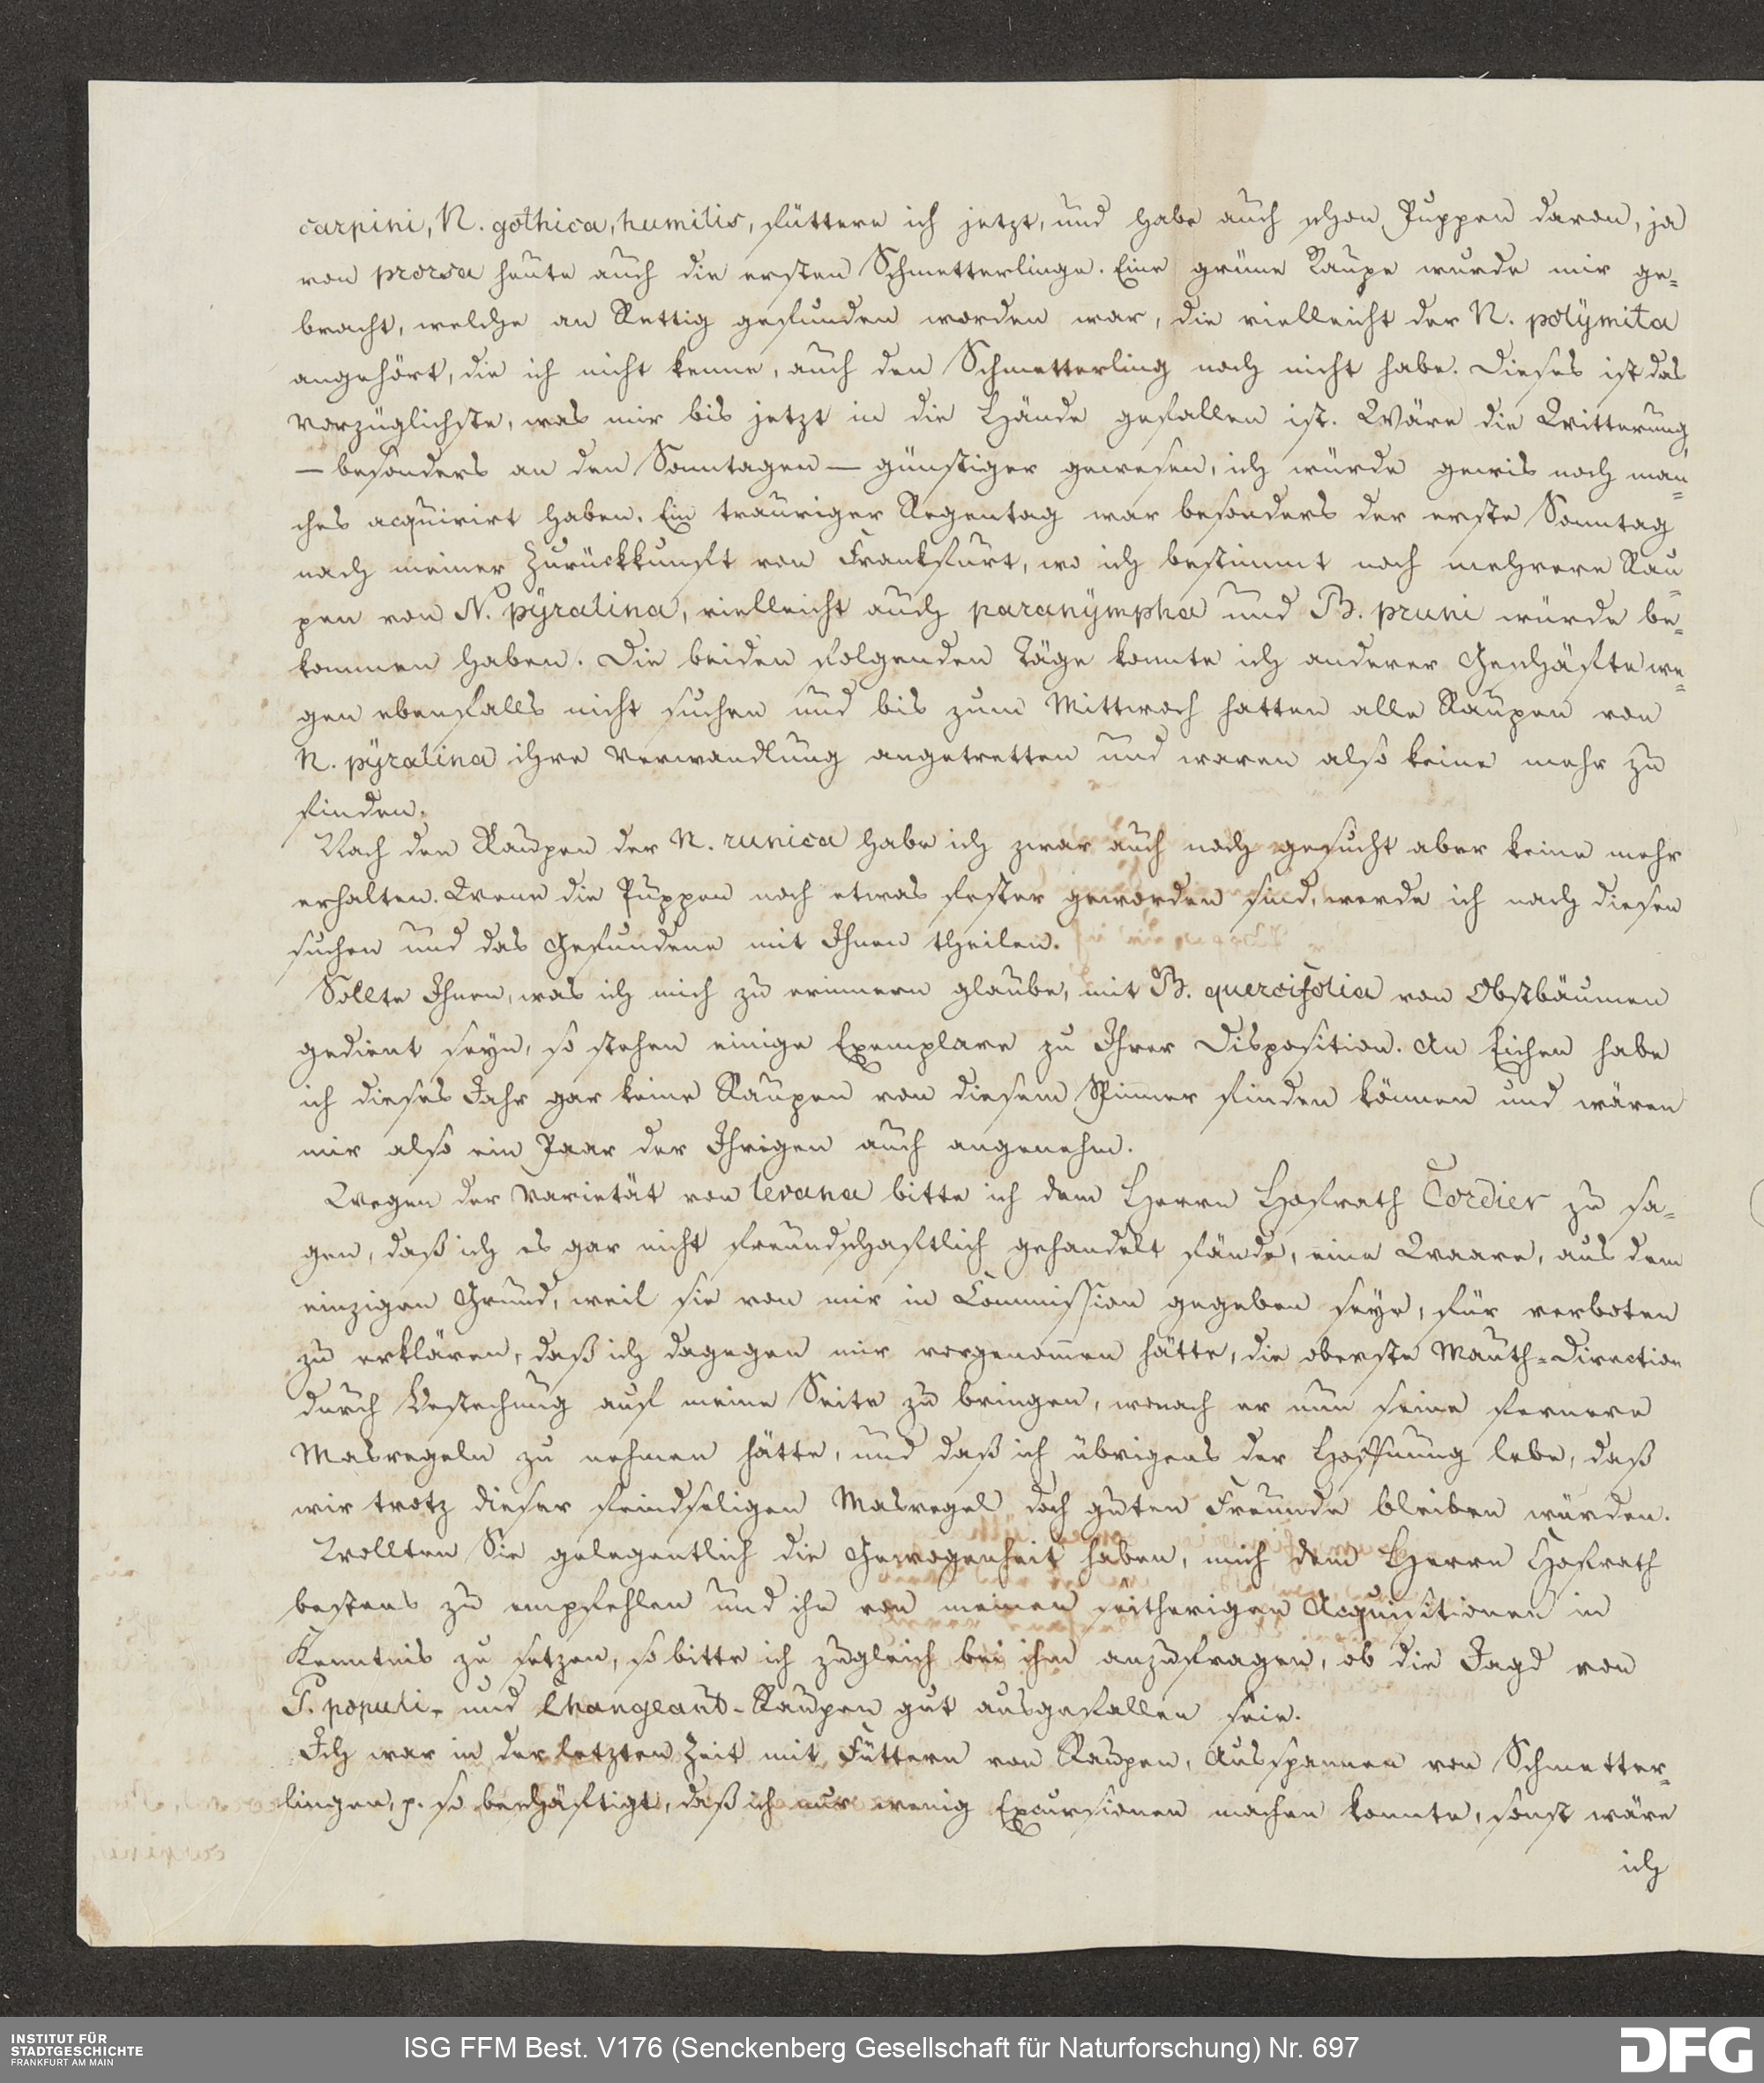 carpini, N. gothica, humilis, füttere ich jetzt, und habe auch schon Puppen davon, ja
von prorsa heute auch die ersten Schmetterlinge. Eine grüne Raupe wurde mir ge-
bracht, welche an Rettig gefunden worden war, die vielleicht der N. polymita
angehört, die ich nicht kenne, auch den Schmetterling noch nicht habe. Dieses ist das
Vorzüglichste, was mir bis jetzt in die Hände gefallen ist. Wäre die Witterung,
— besonders an den Sonntagen — günstiger gewesen, ich würde gewis noch man-
ches acquirirt haben. Ein trauriger Regentag war besonders der erste Sonntag
nach meiner Zurückkunft von Frankfurt, wo ich bestimmt noch mehrere Rau-
pen von N. pyralina, vielleicht auch paranympha und B. pruni würde be-
kommen haben. Die beiden folgenden Täge konnte ich anderer Geschäfte we-
gen ebenfalls nicht suchen und bis zum Mittwoch hatten alle Raupen von
N. pyralina ihre Verwandlung angetretten und waren also keine mehr zu
finden.
Nach den Raupen der N. runica habe ich zwar auch noch gesucht aber keine mehr
erhalten. Wenn die Puppen noch etwas fester geworden sind, werde ich nach diesen
suchen und das Gefundene mit Ihnen theilen.
Sollte Ihnen, was ich mich zu erinnern glaube, mit B. quercifolia von Obstbäumen
gedient seyn, so stehen einige Exemplare zu Ihrer Disposition. An Eichen habe
ich dieses Jahr gar keine Raupen von diesem Spinner finden können und wären
mir also ein Paar der Ihrigen auch angenehm.
Wegen der Varietät von levana bitte ich dem Herrn Hofrath Cordier zu sa-
gen, daß ich es gar nicht freundschaftlich gehandelt fände, eine Waare, aus dem
einzigen Grund, weil sie von mir in Commission gegeben seye, für verboten
zu erklären, daß ich dagegen mir vorgenom̅en hätte, die oberste Mauth-Direction
durch Bestechung auf meine Seite zu bringen, wonach er nun seine fernere
Masregeln zu nehmen hätte, und daß ich übrigens der Hoffnung lebe, daß
wir trotz dieser feindseligen Masregel doch guten Freunde bleiben würden.
Wollten Sie gelegentlich die Gewogenheit haben, mich dem Herrn Hofrath
bestens zu empfehlen und ihn von meinen seitherigen Acquisitionen in
Kenntnis zu setzen, so bitte ich zugleich bei ihm anzufragen, ob die Jagd von
P. populi- und Changeant-Raupen gut ausgefallen seie.
Ich war in der letzten Zeit mit Füttern von Raupen, Ausspannen von Schmetter-
lingen, p. so beschäftigt, daß ich nur wenig Excursionen machen konnte, sonst wäre
ich
INSTITUT FÜR
STADTGESCHICHTE
FRANKFURT AM MAIN
ISG FFM Best. V176 (Senckenberg Gesellschaft für Naturforschung) Nr. 697
DFG